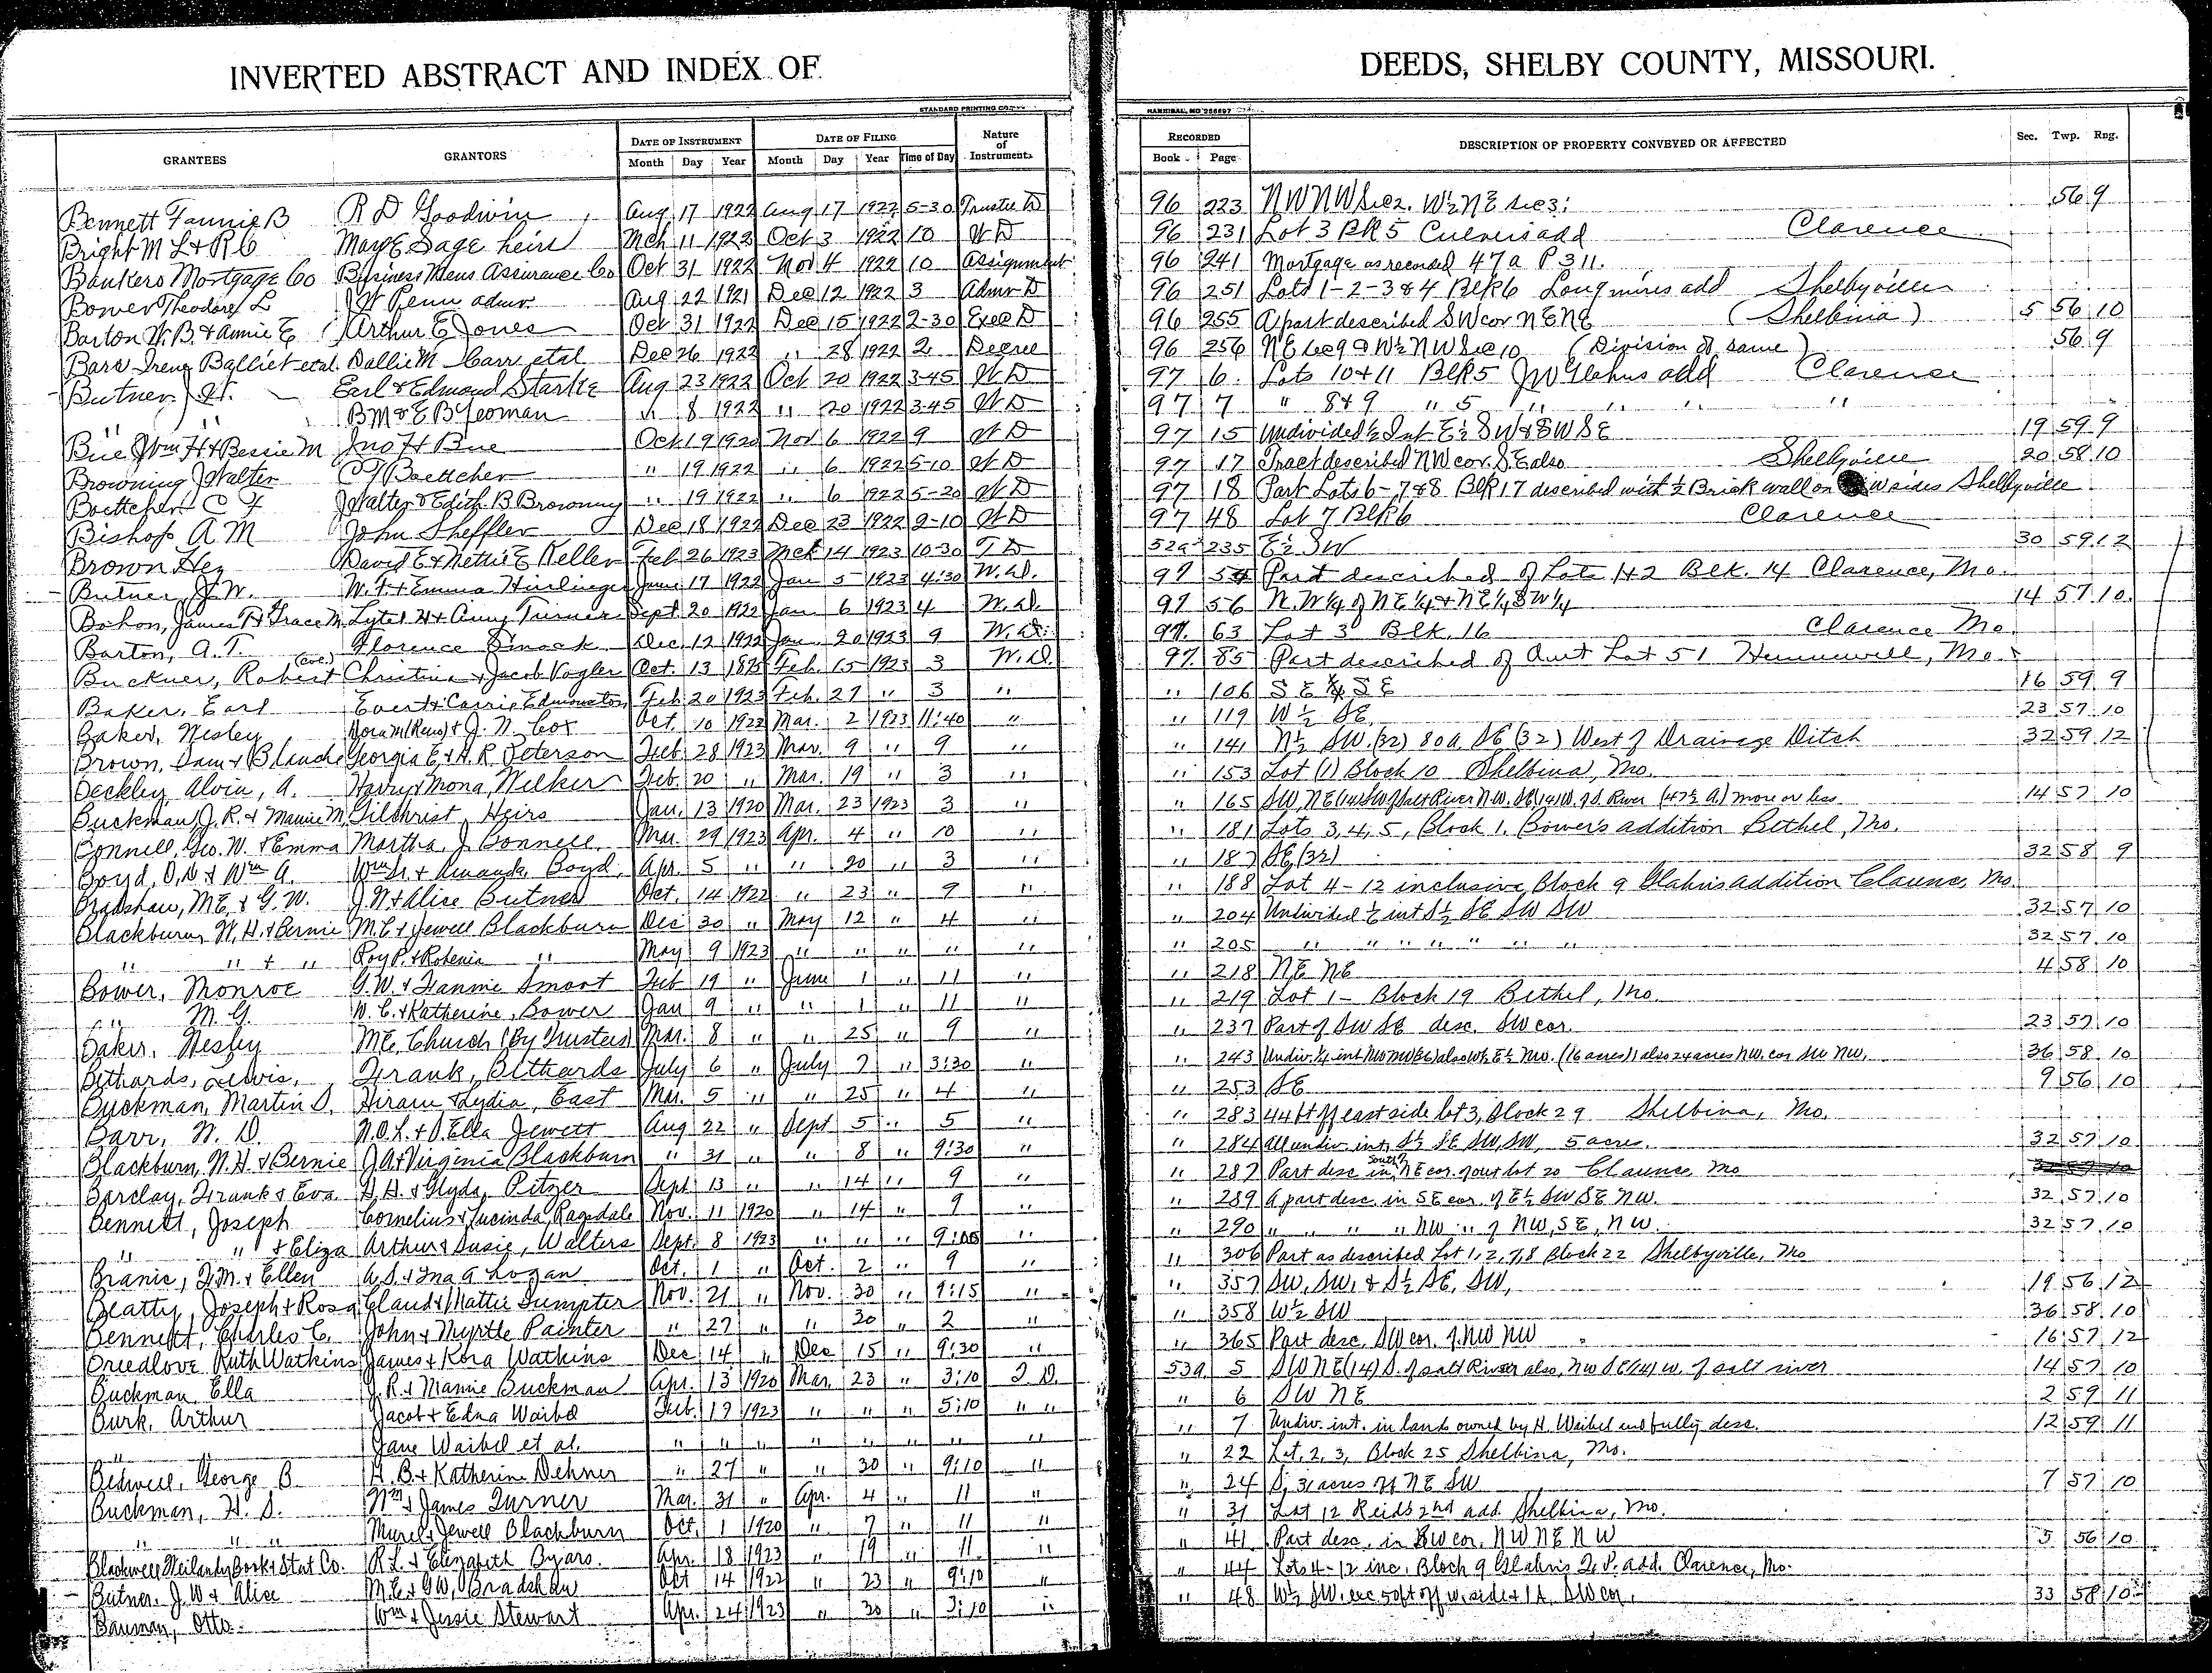 INVERTED ABSTRACT AND INDEX OF
DEEDS, SHELBY COUNTY, MISSOURI.
STANDARD PRINTING CO.
HANNIBAL, MO
GRANTEES GRANTORS DATE OF INSTRUMENT Month Day Year DATE OF FILING Month Day Year Time of Day Nature of Instruments RECORDED Book Page DESCRIPTION OF PROPERTY CONVEYED OR AFFECTED Sec. Twp. Rng.
Bennett Fannie B R D Goodwin Aug 17 1922 Aug 17 1922 5-30 Trustee D 96 223 NWNW Sec 2. W½NE Sec 3: 56 9
Bright M L & R C May E Sage heirs Mch 11 1922 Oct 3 1922 10 W D 96 231 Lot 3 Blk 5 Culvers add Clarence
Bankers Mortgage Co Business Mens Assurance Co Oct 31 1922 Nov 4 1922 10 Assignment 96 241 Mortgage as recorded 47a P 311.
Bower Theodore L J W Penn admr Aug 22 1921 Dec 12 1922 3 Admr D 96 251 Lots 1-2-3 & 4 Blk 6 Longmires add Shelbyville
Barton W. B. & Annie E Arthur E Jones Oct 31 1922 Dec 15 1922 2-30 Exec D 96 255 A part described SW cor NENE (Shelbina) 5 56 10
Barr Irene Balliet etal. Dallie M Carr etal Dec 26 1922 " 28 1922 2 Decree 96 256 NE Sec 9 & W½ NW Sec 10 (Division of same) 56 9
Butner J W. Earl & Edmond Starke Aug 23 1922 Oct 20 1922 3-45 W D 97 6 Lots 10 & 11 Blk 5 J W Glahns add Clarence
" " B M & E B Yeoman " 8 1922 " 20 1922 3-45 W D 97 7 " 8 & 9 " 5 " " " "
Bue Wm H & Bessie M Jno H Bue Oct 19 1920 Nov 6 1922 9 W D 97 15 Undivided ½ Int E½ SW & SW SE 19 59 9
Browning J Walter C F Boettcher " 19 1922 " 6 1922 5-10 W D 97 17 Tract described NW cor. SE also Shelbyville 20 58 10
Boettcher C F J Walter & Edith B Browning " 19 1922 " 6 1922 5-20 W D 97 18 Part Lots 6-7 & 8 Blk 17 described with ½ Brick wall on W sides Shelbyville
Bishop A M John Sheffler Dec 18 1922 Dec 23 1922 2-10 W D 97 48 Lot 7 Blk 6 Clarence
Brown Hez David E & Nettie E Keller Feb 26 1923 Mch 14 1923 10-30 T D 52a 235 E½ SW 30 59 12
Butner, J. W. W. F. & Emma Hirlinger June 17 1922 Jan 5 1923 4:30 W. D. 97 54 Part described of Lots 1 & 2 Blk. 14 Clarence, Mo.
Bohon, James R & Grace M. Lytel H & Amy Turner Sept. 20 1922 Jan 6 1923 4 W. D. 97 56 N. W ¼ of NE ¼ & NE ¼ SW ¼ 14 57 10.
Barton, A. T. Florence Dimock Dec. 12 1922 Jan. 20 1923 9 W. D. 97. 63 Lot 3 Blk. 16 Clarence Mo.
Buckner, Robert (Col.) Christina & Jacob Vogler Oct. 13 1875 Feb. 15 1923 3 W. D. 97. 85 Part described of Out Lot 51 Hunnewell, Mo.
Baker, Earl Evert & Carrie Edmonston Feb 20 1923 Feb. 27 " 3 " " 106 S E ¼ S E 16 59 9
Baker, Wesley Nora M (Reno) & J. N. Cox Oct. 10 1922 Mar. 2 1923 11:40 " " 119 W ½ SE 23 57 10
Brown, Sam & Blanch Georgia E. & H. R. Peterson Feb 28 1923 Mar. 9 " 9 " " 141 N½ SW. (32) 80a SE (32) West of Drainage Ditch 32 59 12
Beckley, Alvin, A. Harry & Mona Wilker Feb. 20 " Mar. 19 " 3 " " 153 Lot (1) Block 10 Shelbina, Mo.
Buckman, J. R. & Mamie M. Gilchrist Heirs Jan. 13 1920 Mar. 23 1923 3 " " 165 SW, NE (14) SW of Salt River N.W. SE (14) W. of S. River (47½ A.) more or less 14 57 10
Bonnell, Geo. W. & Emma Martha J. Bonnell Mar. 29 1923 Apr. 4 " 10 " " 181 Lots 3, 4, 5, Block 1. Bower's addition Bethel, Mo.
Boyd, O. D. & Wm A. Wm D. & Amanda Boyd Apr. 5 " " 20 " 3 " " 187 SE (32) 32 58 9
Bradshaw, M. E. & G. W. J. W. & Alice Butner Oct. 14 1922 " 23 " 9 " " 188 Lot 4-12 inclusive, Block 9 Glahns addition Clarence, Mo.
Blackburn, W. H. & Bernie M. E. & Jewell Blackburn Dec 30 " May 12 " 4 " " 204 Undivided ⅙ int S½ SE SW SW 32 57 10
" " & " Roy P. & Rohenia " May 9 1923 " " " " " " 205 " " " " " " " 32 57 10
Bower, Monroe G. W. & Fannie Smoot Feb 19 " June 1 " 11 " " 218 NE NE 4 58 10
" M. G. W. C. & Katherine, Bower Jan 9 " " 1 " 11 " " 219 Lot 1 - Block 19 Bethel, Mo.
Baker, Wesley M. E. Church (By Trustees) Mar. 8 " " 25 " 9 " " 237 Part of SW SE desc. SW cor. 23 57 10
Bethards, Lewis, Frank, Bethards July 6 " July 7 " 3:30 " " 243 36 58 10
Buckman, Martin D. Hiram & Lydia, East Mar. 5 " " 25 " 4 " " 253 SE 9 56 10
Barr, W. D. N. O. L. & D. Ella Jewett Aug 22 " Sept 5 " 5 " " 283 44 ft off east side lot 3, Block 29 Shelbina, Mo.
Blackburn, W. H. & Bernie J. A. & Virginia Blackburn " 31 " " 8 " 9:30 " " 284 All undiv. int. S½ SE SW, SW, 5 acres. 32 57 10
Barclay, Frank & Eva H. H. & Glyda, Pitzer Sept 13 " " 14 " 9 " " 287 Part desc in South of NE cor. of out lot 20 Clarence, Mo
Bennett, Joseph Cornelius & Lucinda, Ragsdale Nov. 11 1920 " 14 " 9 " " 289 A part desc. in SE cor. of E½ SW SE NW. 32 57 10
" " & Eliza Arthur & Susie, Walters Sept. 8 1923 " " " 9:05 " " 290 " " " " NW " of NW, SE, NW. 32 57 10
Branic, F. M. & Ellen A. S. & Ina A Logan Oct. 1 " Oct. 2 " 9 " " 306 Part as described Lot 1, 2, 7, 8 Block 22 Shelbyville, Mo
Beatty, Joseph & Rosa Claud & Mattie Sumpter Nov. 21 " Nov. 30 " 9:15 " " 357 SW, SW, & S½ SE, SW, 19 56 12
Bennett, Charles C. John & Myrtle Painter " 27 " " 30 " 2 " " 358 W½ SW 36 58 10
Breedlove Ruth Watkins James & Kora Watkins Dec 14 " Dec 15 " 9:30 " " 365 Part desc. SW cor. of NW NW 16 57 12
Buckman Ella J. R. & Mamie Buckman Apr. 13 1920 Mar. 23 " 3:10 T. D. 53a 5 SW NE (14) S. of salt River also, NW SE (14) W. of salt river 14 57 10
Burk, Arthur Jacob & Edna Waibel Feb. 19 1923 " " " 5:10 " " " 6 SW NE 2 59 11
" Jane Waibel et al. " " " " " " " " " 7 Undiv. int. in lands owned by H. Waibel and fully desc. 12 59 11
Bidwell, George B. H. B. & Katherine Dehner " 27 " " 30 " 9:10 " " 22 Lot, 2, 3, Block 25 Shelbina, Mo.
Buckman, H. D. Wm & James Turner Mar. 31 " Apr. 4 " 11 " " 24 S, 31 acres of NE SW 7 57 10
" " " Murel & Jewell Blackburn Oct, 1 1920 " 7 " 11 " " 31 Lot 12 Reids 2nd add. Shelbina, Mo.
Blackwell Weilandy Book & Stat Co. R. L. & Elizabeth Byars. Apr. 18 1923 " 19 " 11 " " 41 Part desc. in SW cor. NW NE NW 5 56 10
Butner, J. W & Alice M. E. & G W, Bradshaw Oct 14 1922 " 23 " 9:10 " " 44 Lots 4-12 inc, Block 9 Glahns add. Clarence, Mo.
Bauman, Otto. Wm & Jessie Stewart Apr. 24 1923 " 30 " 3:10 " " 48 W½ SW. exc 50 ft off w. side & 1 A. SW cor. 33 58 10